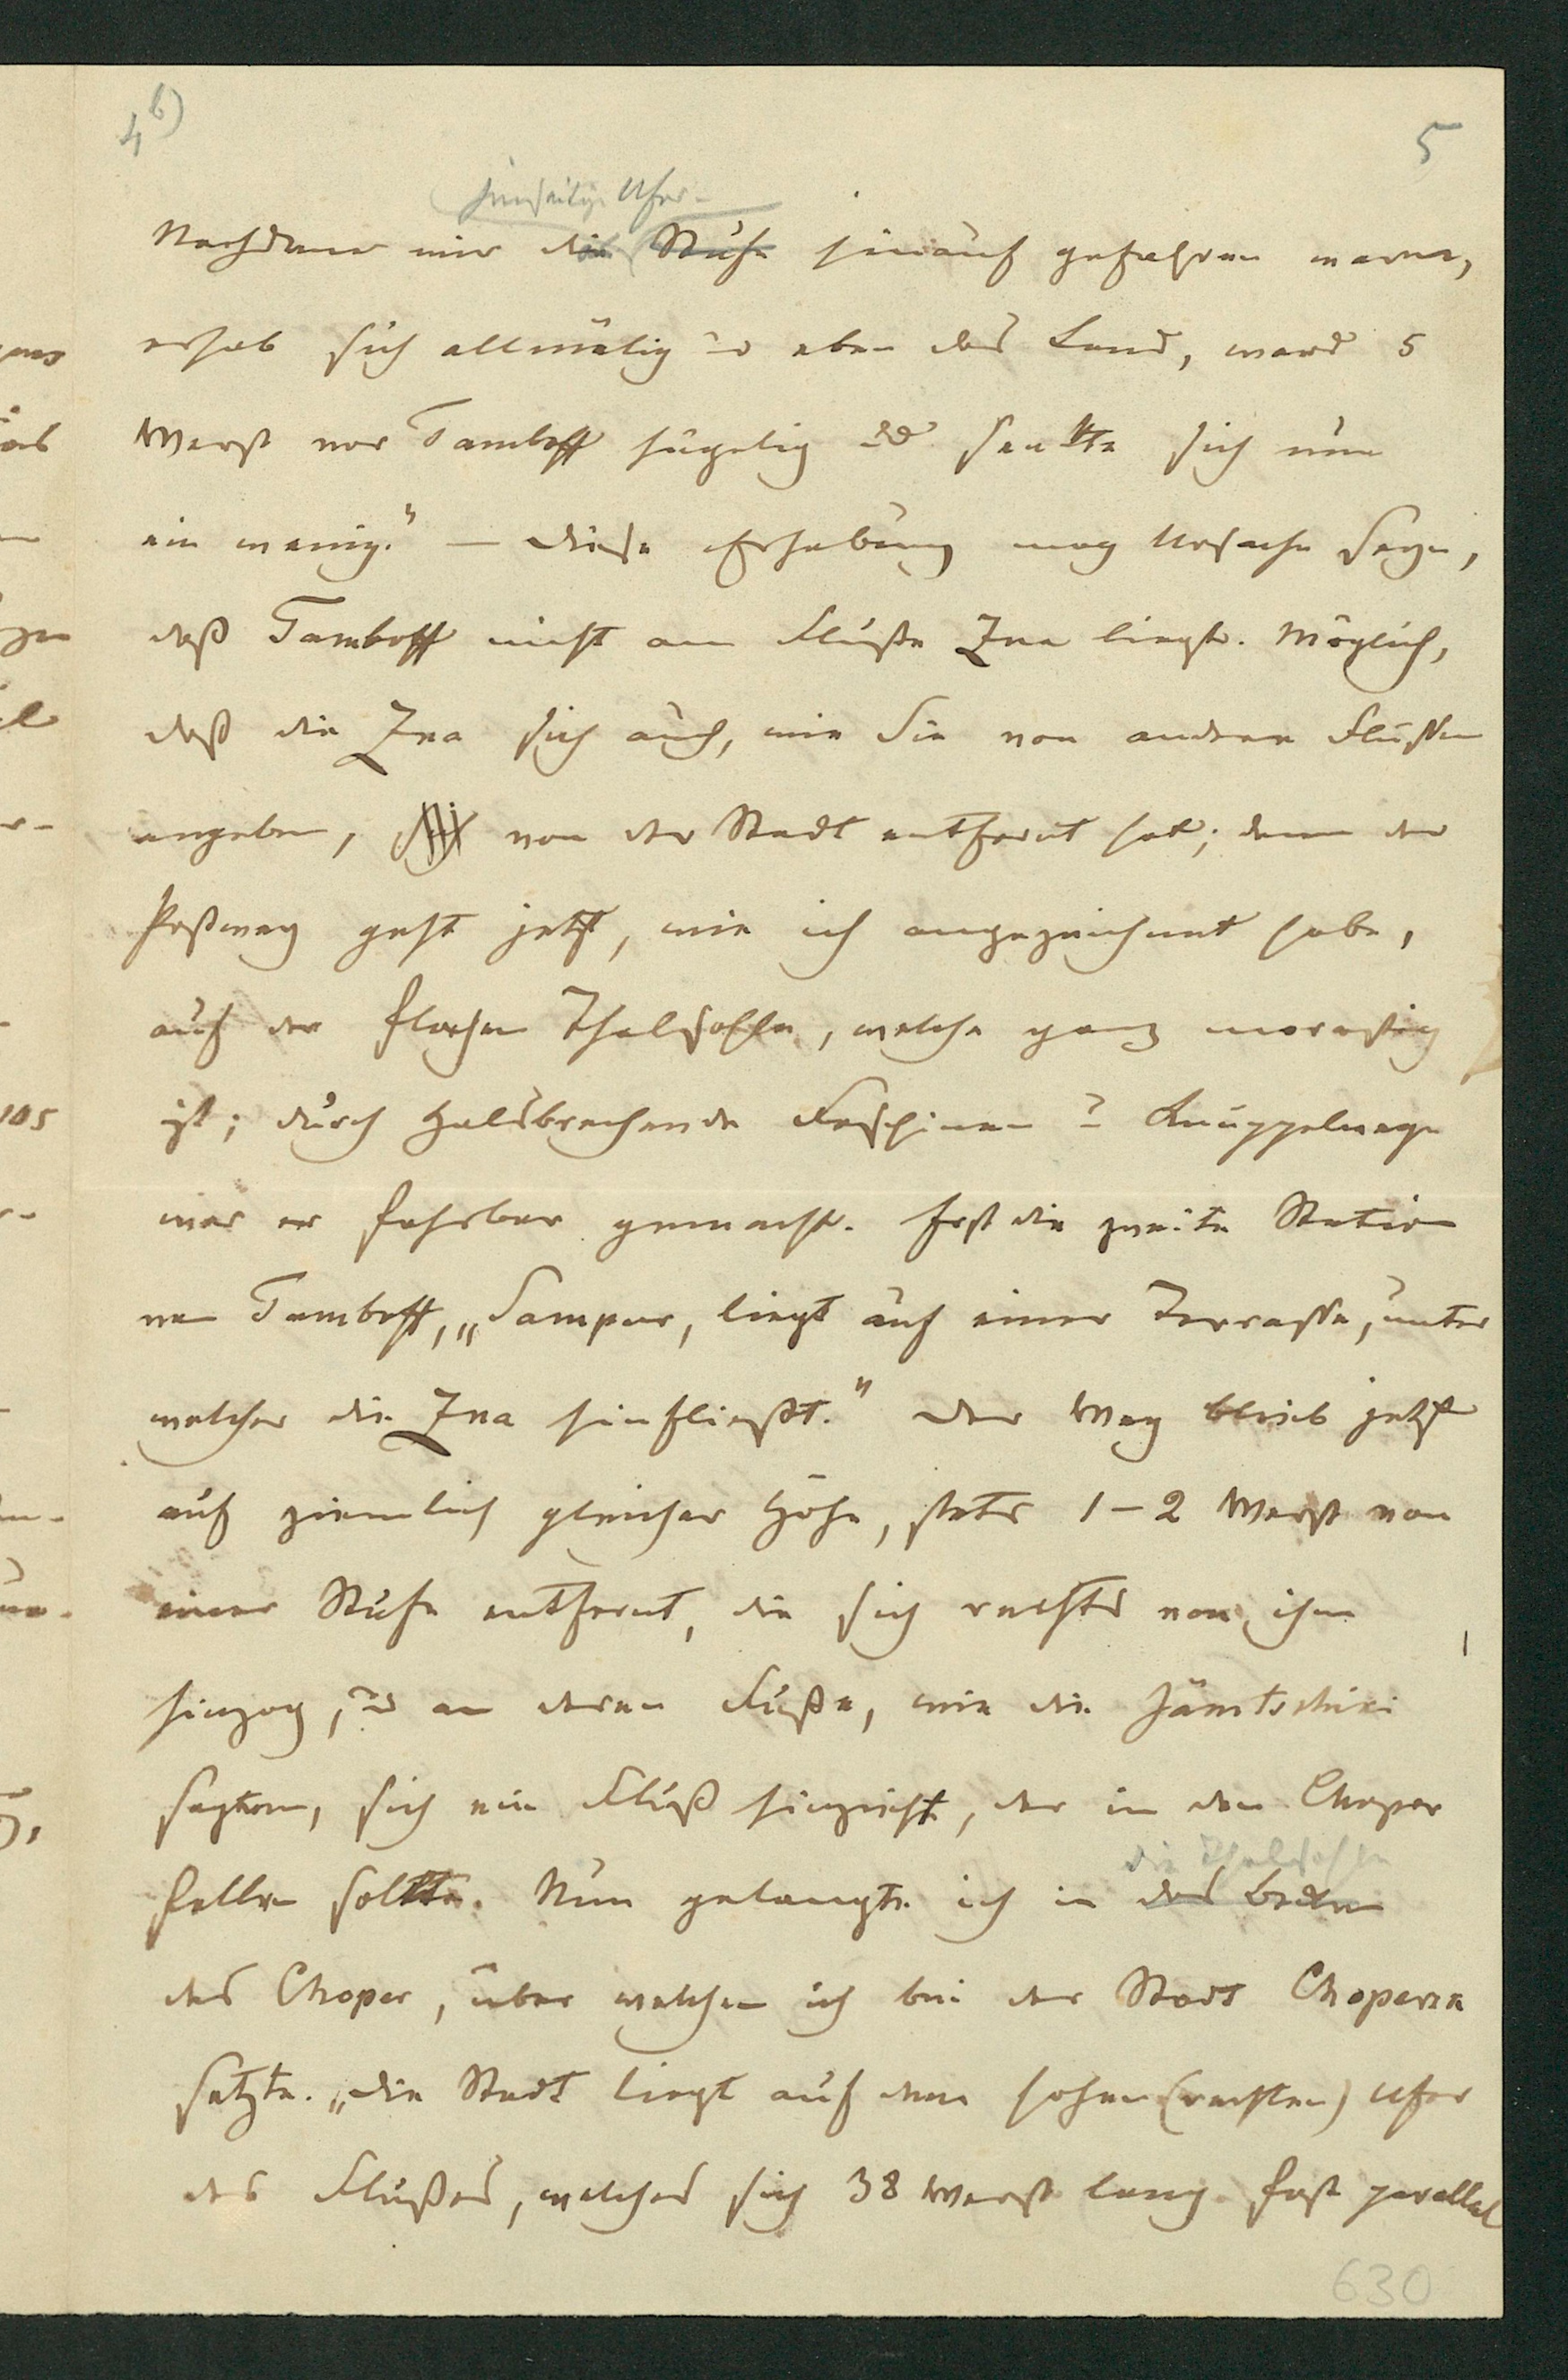 4 b)
5
jenseitige Ufer
Nachdem wir die Stufe hinauf gefahren waren,
erhob sich allmälig u eben das Land, ward 5
Werst vor Tamboff hügelig und senkte sich nun
ein wenig." — Diese Erhebung mag Ursache seyn,
daß Tamboff nicht am Fluße Zna liegt. Möglich,
daß die Zna sich auch, wie Sie von andern Flüssen
angeben, von der Stadt entfernt hat; denn der
Postweg geht jetzt, wie ich angezeichnet habe,
auf der flachen Thalsohle, welche ganz morastig
ist; durch halsbrechende Faschinen u Knüppelwege
war er fahrbar gemacht. Erst die zweite Station
von Tamboff, „Sampur, liegt auf einer Terrasse, unter
welcher die Zna hinfließt." Der Weg blieb jetzt
auf ziemlich gleicher Höhe, stets 1-2 Werst von
einer Stufe entfernt, die sich rechts von ihm
hinzog, u an deren Fuße, wie die Jämtschiki
sagten, sich ein Fluß hinzieht, der in den Choper
fallen sollte. Nun gelangte ich in das Becken
die Thalsohle
des Choper, über welchen ich bei der Stadt Choperza
setzte. „Die Stadt liegt auf dem hohen (rechten) Ufer
des Flußes, welches sich 38 Werst lang fast parallel
630